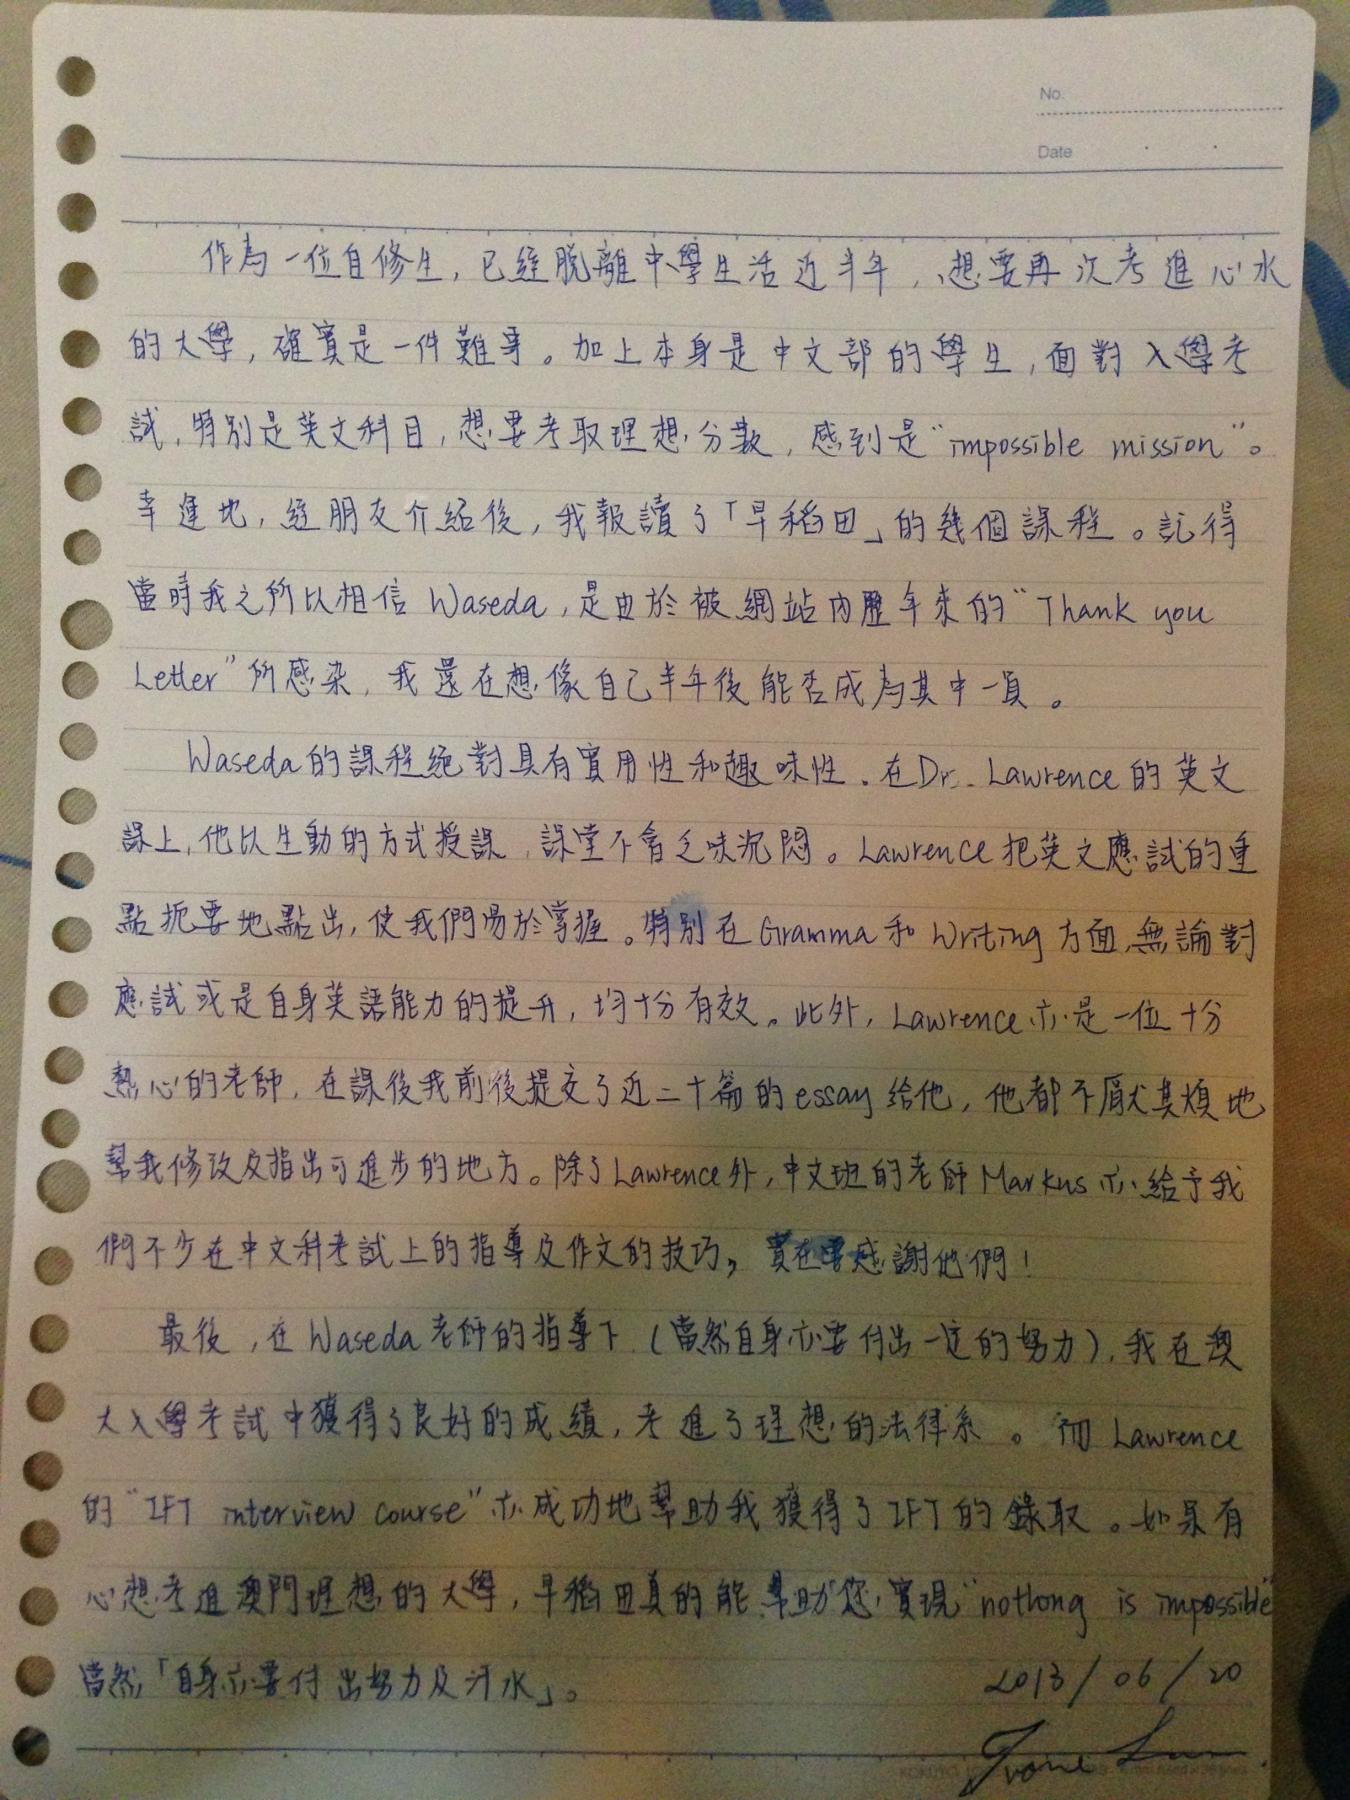 No.
Date
作為一位自修生，已經脫離中學生活近半年，想要再次考進心水
的大學，確實是一件難事。加上本身是中文部的學生，面對入學考
試，特別是英文科目，想要考取理想分數，感到是“impossible mission”。
幸運地，經朋友介紹後，我報讀了「早稻田」的幾個課程。記得
當時我之所以相信 Waseda，是由於被網站內歷年來的“Thank you
Letter”所感染，我還在想像自己半年後能否成為其中一頁。
Waseda的課程絕對具有實用性和趣味性．在Dr. Lawrence的英文
課上，他以生動的方式授課，課堂不會乏味沉悶。Lawrence把英文應試的重
點扼要地點出，使我們易於掌握。特別在Gramma和Writing方面，無論對
應試或是自身英語能力的提升，均十分有效。此外，Lawrence亦是一位十分
熱心的老師，在課後我前後提交了近二十篇的essay給他，他都不厭其煩地
幫我修改及指出可進步的地方。除了Lawrence外，中文班的老師Markus亦給予我
們不少在中文科考試上的指導及作文的技巧，實在要感謝他們！
最後，在Waseda老師的指導下（當然自身亦要付出一定的努力），我在澳
大入學考試中獲得了良好的成績，考進了理想的法律系。而Lawrence
的“IFT interview course”亦成功地幫助我獲得了IFT的錄取。如果有
心想考進澳門理想的大學，早稻田真的能幫助您實現“nothong is impossible”
當然「自身亦要付出努力及汗水」。
2013/06/20